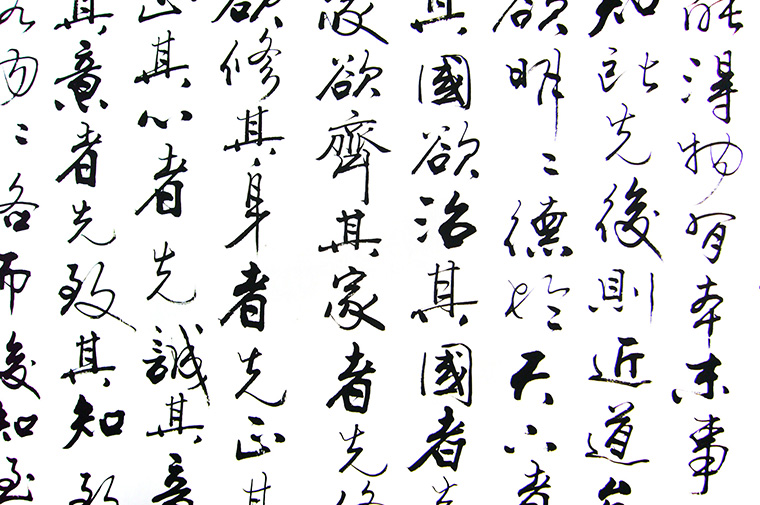 能得物有本末事
知所先後則近道
欲明〻德於天下者
其國欲治其國者先
家欲齊其家者先修
欲修其身者先正其
正其心者先誠其意
其意者先致其知致
格物〻格而後知至